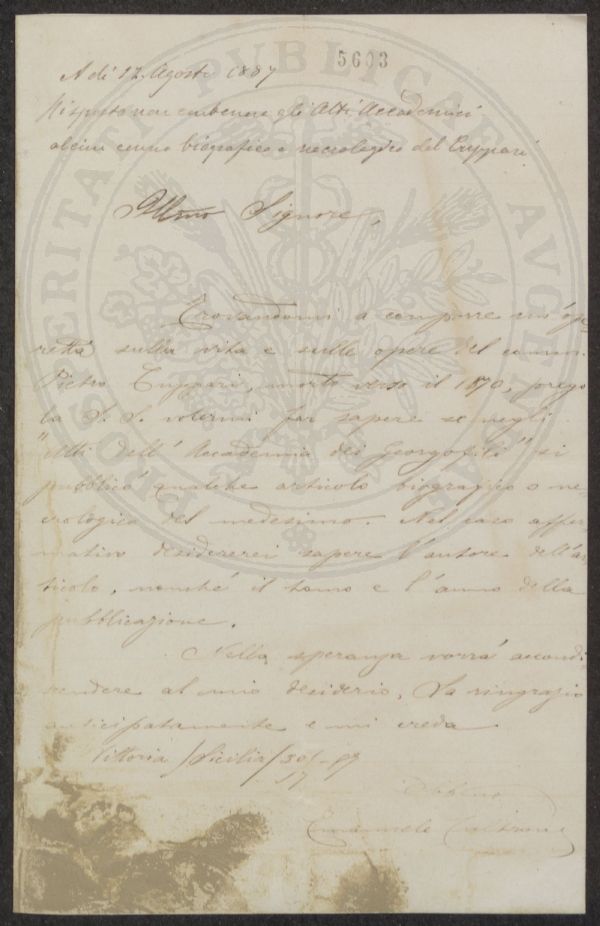 5603
A dì 12 Agosto 1887
Risposto non contenere gli Atti Accademici
alcun cenno biografico o necrologico del Cuppari
PROSPERITATI PUBLICAE AUGENDAE
Illmo Signore,
Trovandomi a comporre un'ope
retta sulla vita e sulle opere del comm.
Pietro Cuppari, morto verso il 1870, prego
la S. S. volermi far sapere se negli
"Atti dell'Accademia dei Georgofili" si
pubblicò qualche articolo biografico o ne-
crologico del medesimo. Nel caso affer
mativo desidererei sapere l'autore dell'ar
ticolo, nonchè il tomo e l'anno della
pubblicazione.
Nella speranza vorrà accondi
scendere al mio desiderio, La ringrazio
anticipatamente e mi creda
Vittoria (Sicilia)
Emanuele